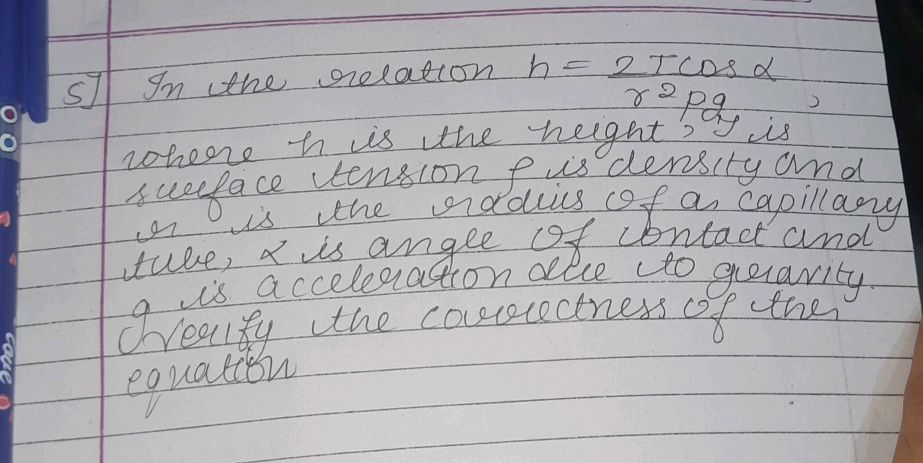 5] In the relation h = 2Tcos α
r2ρg ,
where h is the height, J is
surface tension ρ is density and
r is the radius of a capillary
tube, α is angle of contact and
g is acceleration due to gravity.
Verify the correctness of the
equation